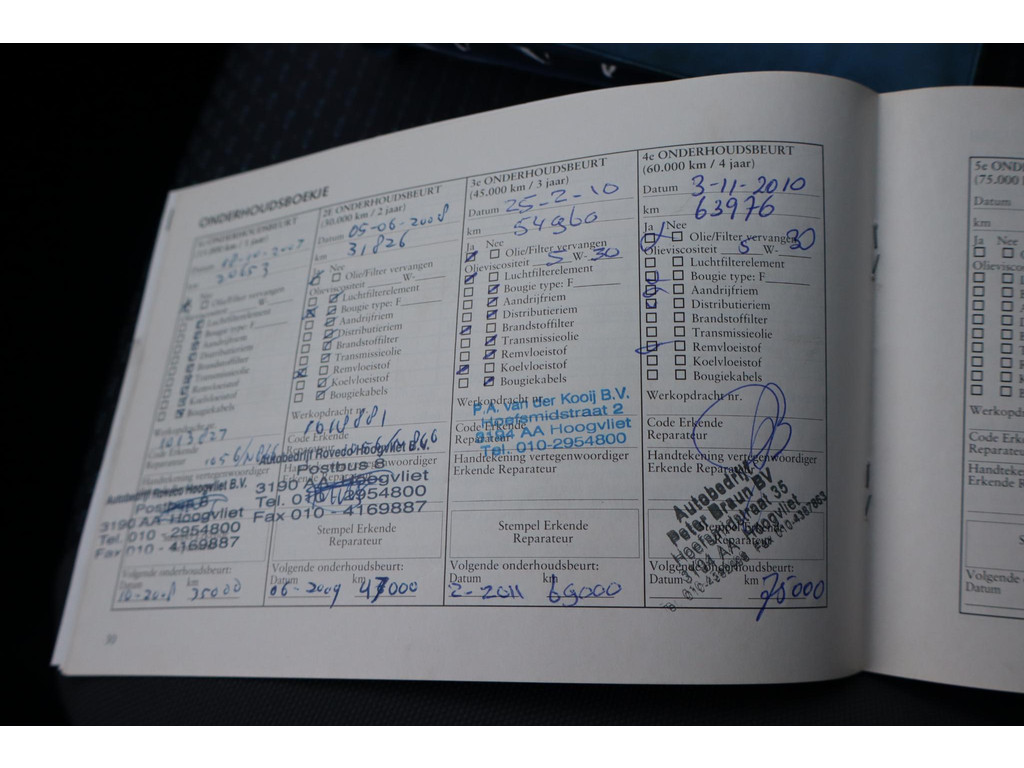 ONDERHOUDSBOEKJE
1e ONDERHOUDSBEURT
(15.000 km / 1 jaar)
Datum 18-10-2007
km 20653
Nee
Olie/Filter vervangen
W-
Luchtfilterelement
Bougie type: F
Aandrijfriem
Distributieriem
Brandstoffilter
Transmissieolie
Remvloeistof
Koelvloeistof
Bougiekabels
Werkopdracht nr.
1013827
Code Erkende
Reparateur
Handtekening vertegenwoordiger
Autobedrijf Rovedo Hoogvliet B.V.
Postbus 8
3190 AA Hoogvliet
Tel. 010 - 2954800
Fax 010 - 4169887
Volgende onderhoudsbeurt:
Datum km
10-2008 35000
2e ONDERHOUDSBEURT
(30.000 km / 2 jaar)
Datum 05-06-2008
km 31826
Nee
Olie/Filter vervangen
Olieviscositeit W-
Luchtfilterelement
Bougie type: F
Aandrijfriem
Distributieriem
Brandstoffilter
Transmissieolie
Remvloeistof
Koelvloeistof
Bougiekabels
Werkopdracht nr.
1018881
Code Erkende
Autobedrijf Rovedo Hoogvliet B.V.
Postbus 8
3190 AA Hoogvliet
Tel. 010 - 2954800
Fax 010 - 4169887
Stempel Erkende
Reparateur
Volgende onderhoudsbeurt:
Datum km
06-2009 47000
3e ONDERHOUDSBEURT
(45.000 km / 3 jaar)
Datum 25-2-10
km 54960
Ja Nee
Olie/Filter vervangen
Olieviscositeit 5 W-30
Luchtfilterelement
Bougie type: F
Aandrijfriem
Distributieriem
Brandstoffilter
Transmissieolie
Remvloeistof
Koelvloeistof
Bougiekabels
Werkopdracht nr.
P.A. van der Kooij B.V.
Hoefsmidstraat 2
Code Erkende
3194 AA Hoogvliet
Reparateur
Tel. 010-2954800
Handtekening vertegenwoordiger
Erkende Reparateur
Stempel Erkende
Reparateur
Volgende onderhoudsbeurt:
Datum km
2-2011 69000
4e ONDERHOUDSBEURT
(60.000 km / 4 jaar)
Datum 3-11-2010
km 63976
Ja Nee
Olie/Filter vervangen
Olieviscositeit 5 W-30
Luchtfilterelement
Bougie type: F
Aandrijfriem
Distributieriem
Brandstoffilter
Transmissieolie
Remvloeistof
Koelvloeistof
Bougiekabels
Werkopdracht nr.
Code Erkende
Reparateur
Handtekening vertegenwoordiger
Erkende Reparateur
Autobedrijf
Peter Braun BV
Hoefsmidstraat 35
3194 AA Hoogvliet
Stempel Erkende
Reparateur
Volgende onderhoudsbeurt:
Datum
75000
5e OND
(75.000
Datum
km
Ja Nee
Olieviscos
Werkopd
Code Erk
Reparateu
Handteke
Erkende R
S
Volgende
Datum